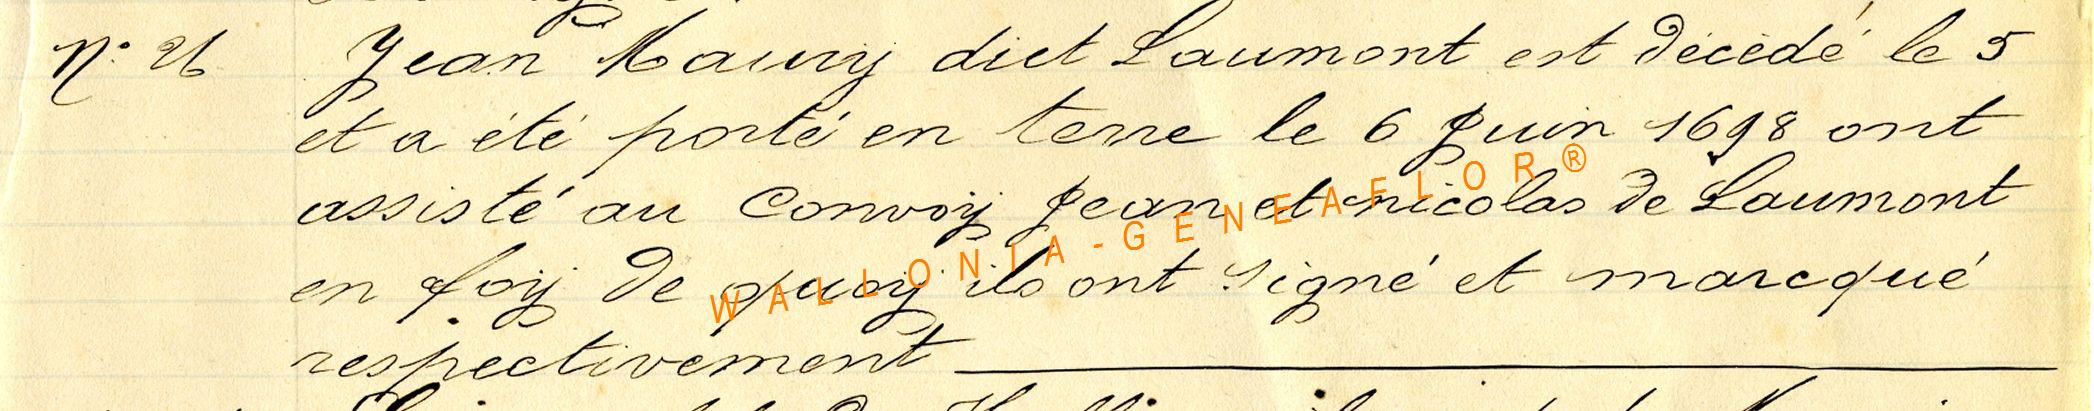 Jean Mauroy dict Laumont est décédé le 5
et a été porté en terre le 6 Juin 1698 ont
assisté au Convoÿ Jean et nicolas de Laumont
en foÿ de quoÿ ils ont signé et marcqué
respectivement
WALLONIA-GENEAFLOR®